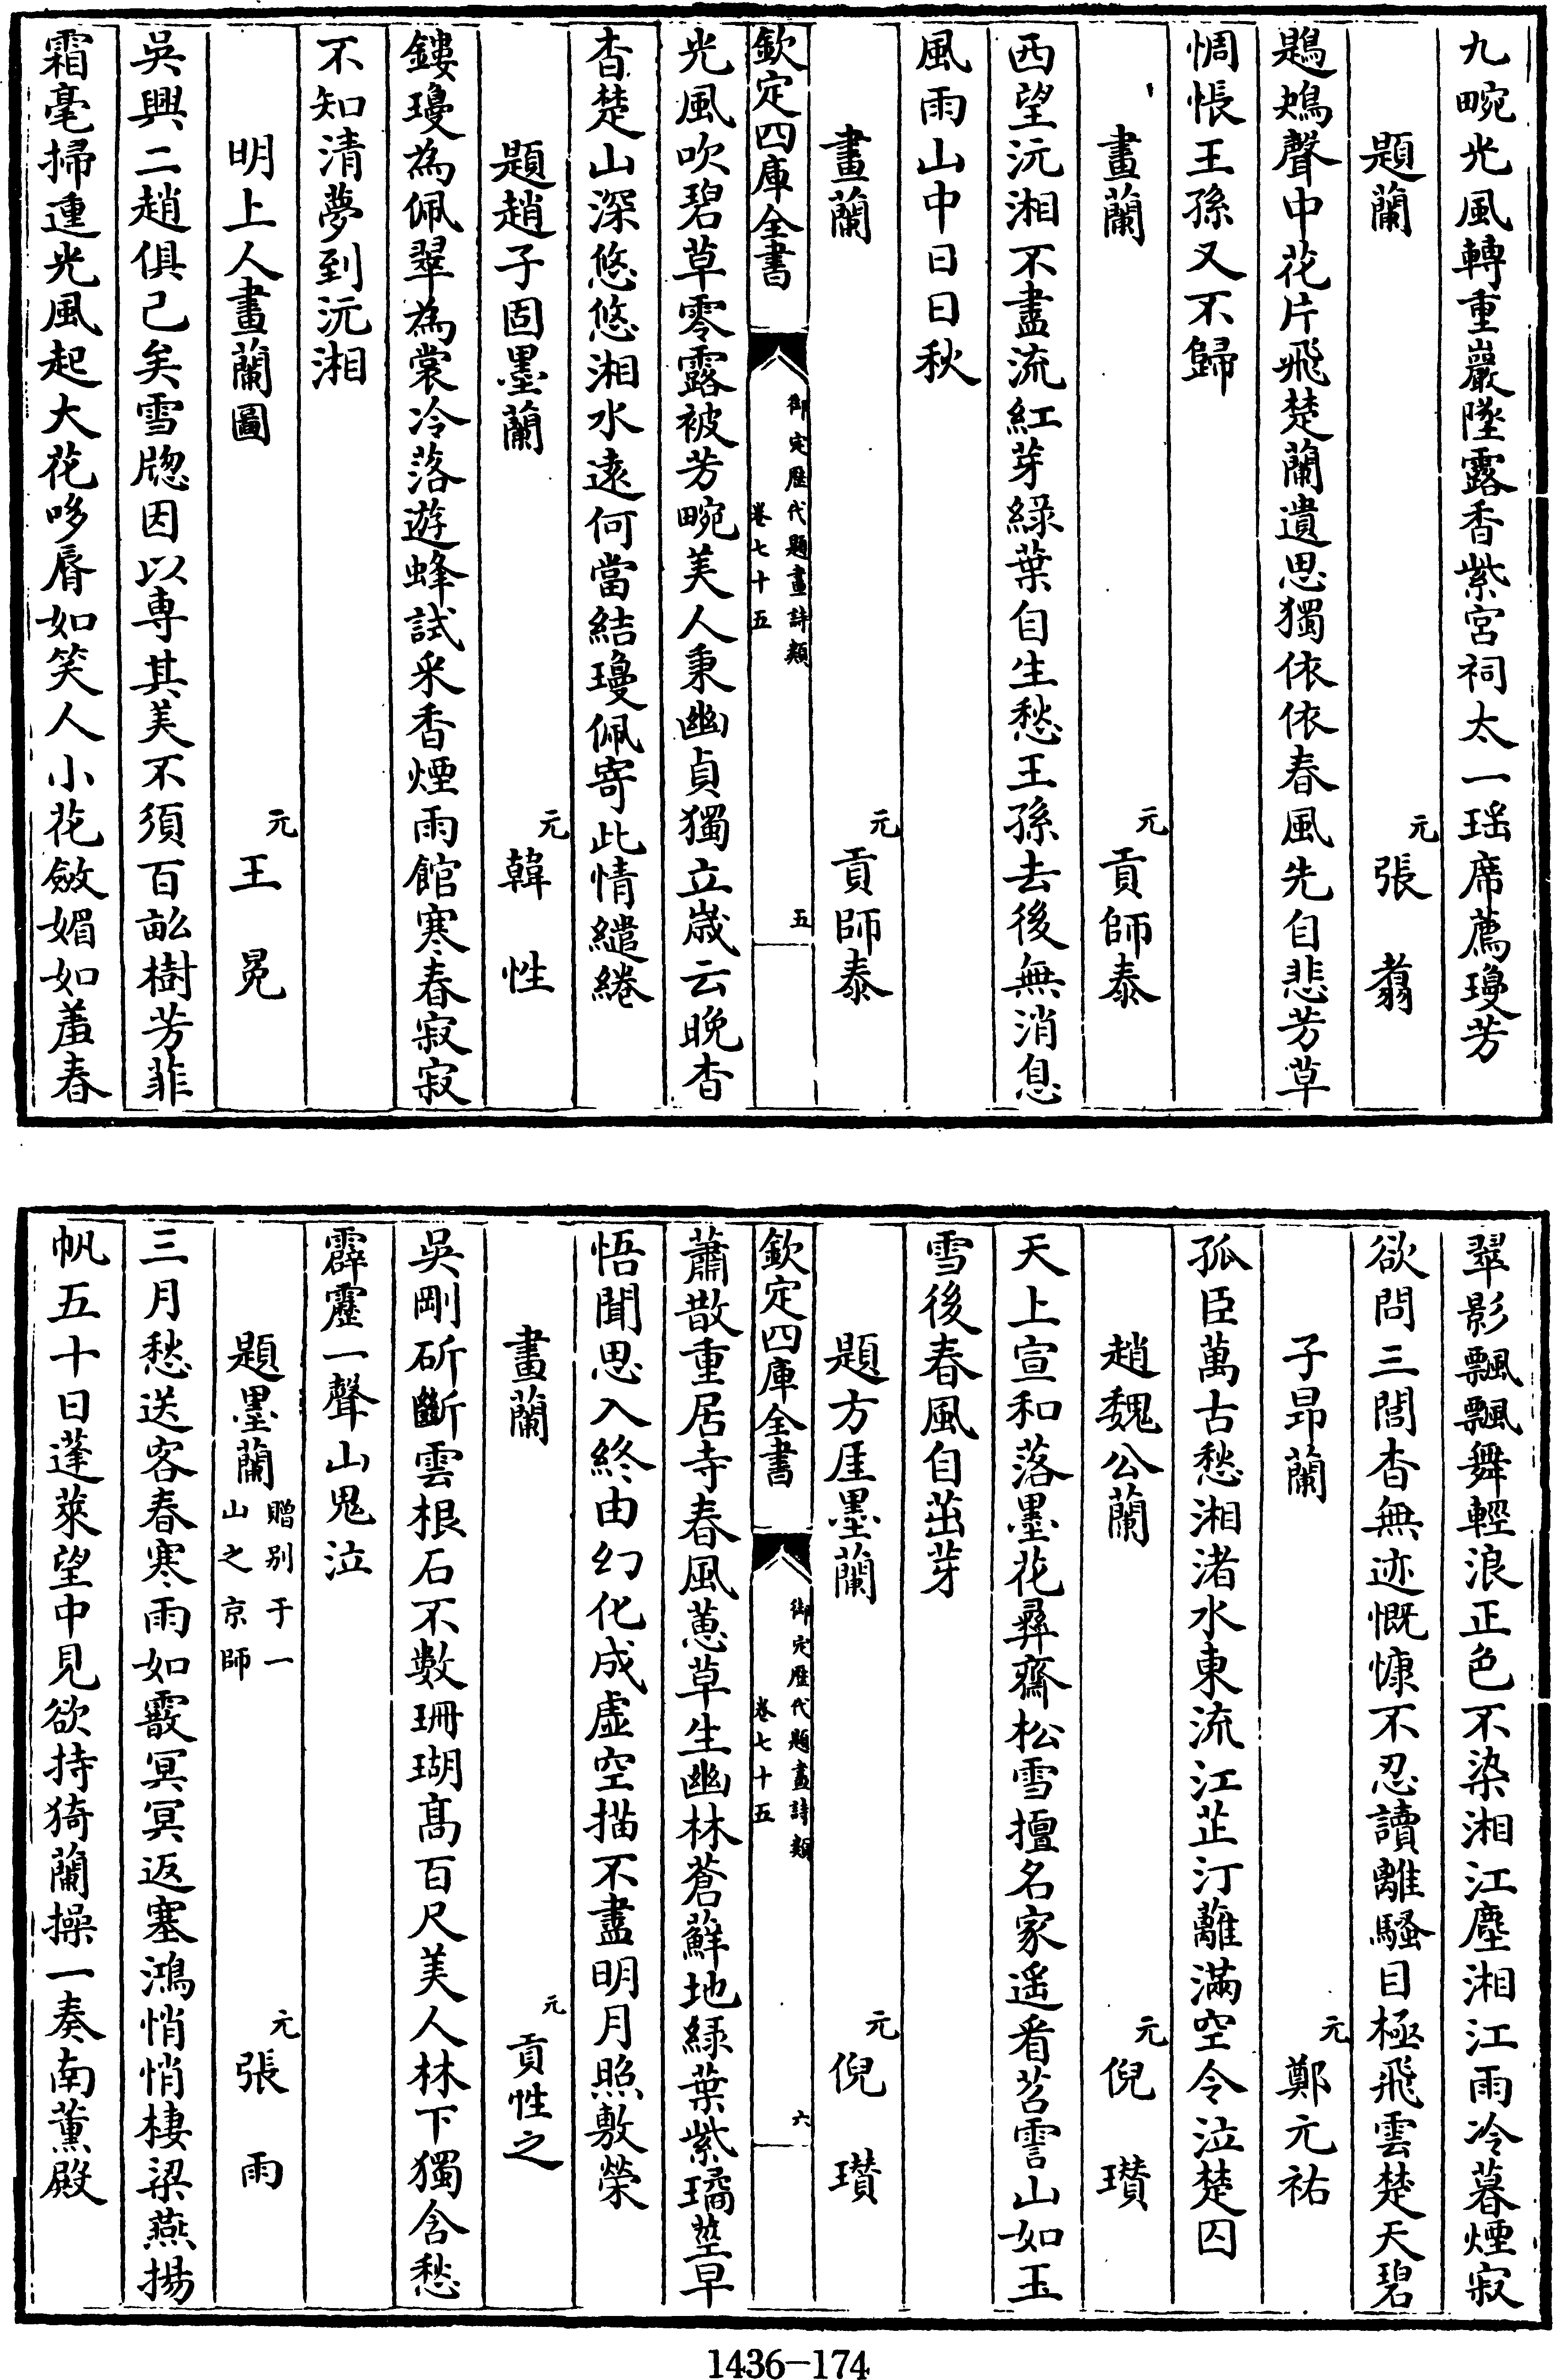 九畹光風轉重巖墜露香紫宮祠太一瑶席薦瓊芳
題蘭 元 張翥
鶗鴂聲中花片飛楚蘭遺思獨依依春風先自悲芳草
惆悵王孫又不歸
畫蘭 元 貢師泰
西望沅湘不盡流紅芽緑葉自生愁王孫去後無消息
風雨山中日日秋
畫蘭 元 貢師泰
欽定四庫全書 御定歷代題畫詩類 卷七十五 五
光風吹碧草零露被芳畹美人秉幽貞獨立歲云晚杳
杳楚山深悠悠湘水遠何當結瓊佩寄此情繾綣
題趙子固墨蘭 元 韓性
鏤瓊為佩翠為裳冷落遊蜂試采香煙雨館寒春寂寂
不知清夢到沅湘
明上人畫蘭圖 元 王冕
吳興二趙俱已矣雪牕因以専其美不須百畆樹芳菲
霜毫掃連光風起大花哆脣如笑人小花斂媚如羞春
翠影飄飄舞輕浪正色不染湘江塵湘江雨冷暮煙寂
欲問三閭杳無迹慨慷不忍讀離騷目極飛雲楚天碧
子昂蘭 元 鄭元祐
孤臣萬古愁湘渚水東流江芷汀蘺滿空令泣楚囚
趙魏公蘭 元 倪瓚
天上宣和落墨花彛齋松雪擅名家遥看苕霅山如玉
雪後春風自茁芽
題方厓墨蘭 元 倪瓚
欽定四庫全書 御定歷代題畫詩類 卷七十五 六
蕭散重居寺春風蕙草生幽林蒼蘚地緑葉紫璚莖早
悟聞思入終由幻化成虛空描不盡明月照敷榮
畫蘭 元 貢性之
吳剛斫斷雲根石不數珊瑚高百尺美人林下獨含愁
霹靂一聲山鬼泣
題墨蘭 贈别于一山之京師 元 張雨
三月愁送客春寒雨如霰冥冥返塞鴻悄悄棲梁燕揚
帆五十日蓬萊望中見欲持猗蘭操一奏南薰殿
1436-174